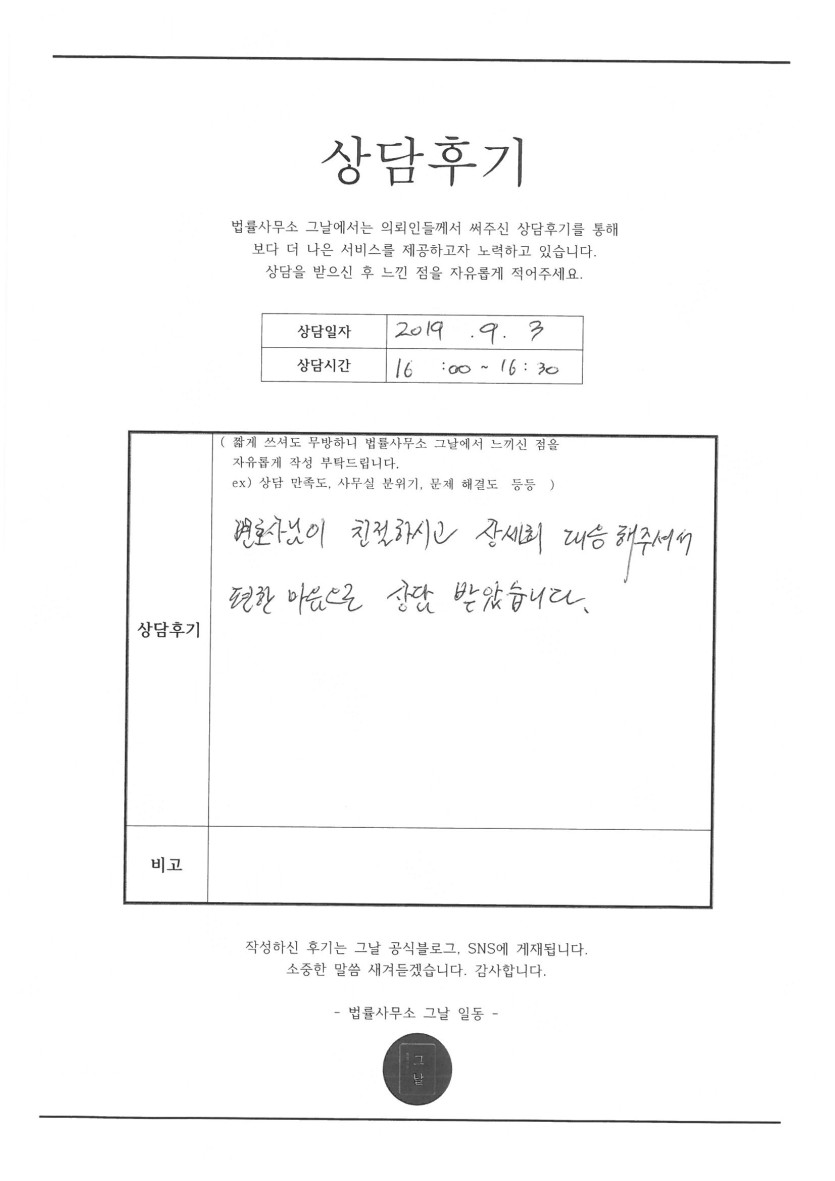 상담후기
법률사무소 그날에서는 의뢰인들께서 써주신 상담후기를 통해
보다 더 나은 서비스를 제공하고자 노력하고 있습니다.
상담을 받으신 후 느낀 점을 자유롭게 적어주세요.
상담일자 2019 .9. 3
상담시간 16 :00 ~ 16:30
( 짧게 쓰셔도 무방하니 법률사무소 그날에서 느끼신 점을
자유롭게 작성 부탁드립니다.
ex) 상담 만족도, 사무실 분위기, 문제 해결도 등등 )
변호사님이 친절하시고 상세희 대응 해주셔서
편한 마음으로 상담 받았습니다.
상담후기
비고
작성하신 후기는 그날 공식블로그, SNS에 게재됩니다.
소중한 말씀 새겨듣겠습니다. 감사합니다.
- 법률사무소 그날 일동 -
그
날